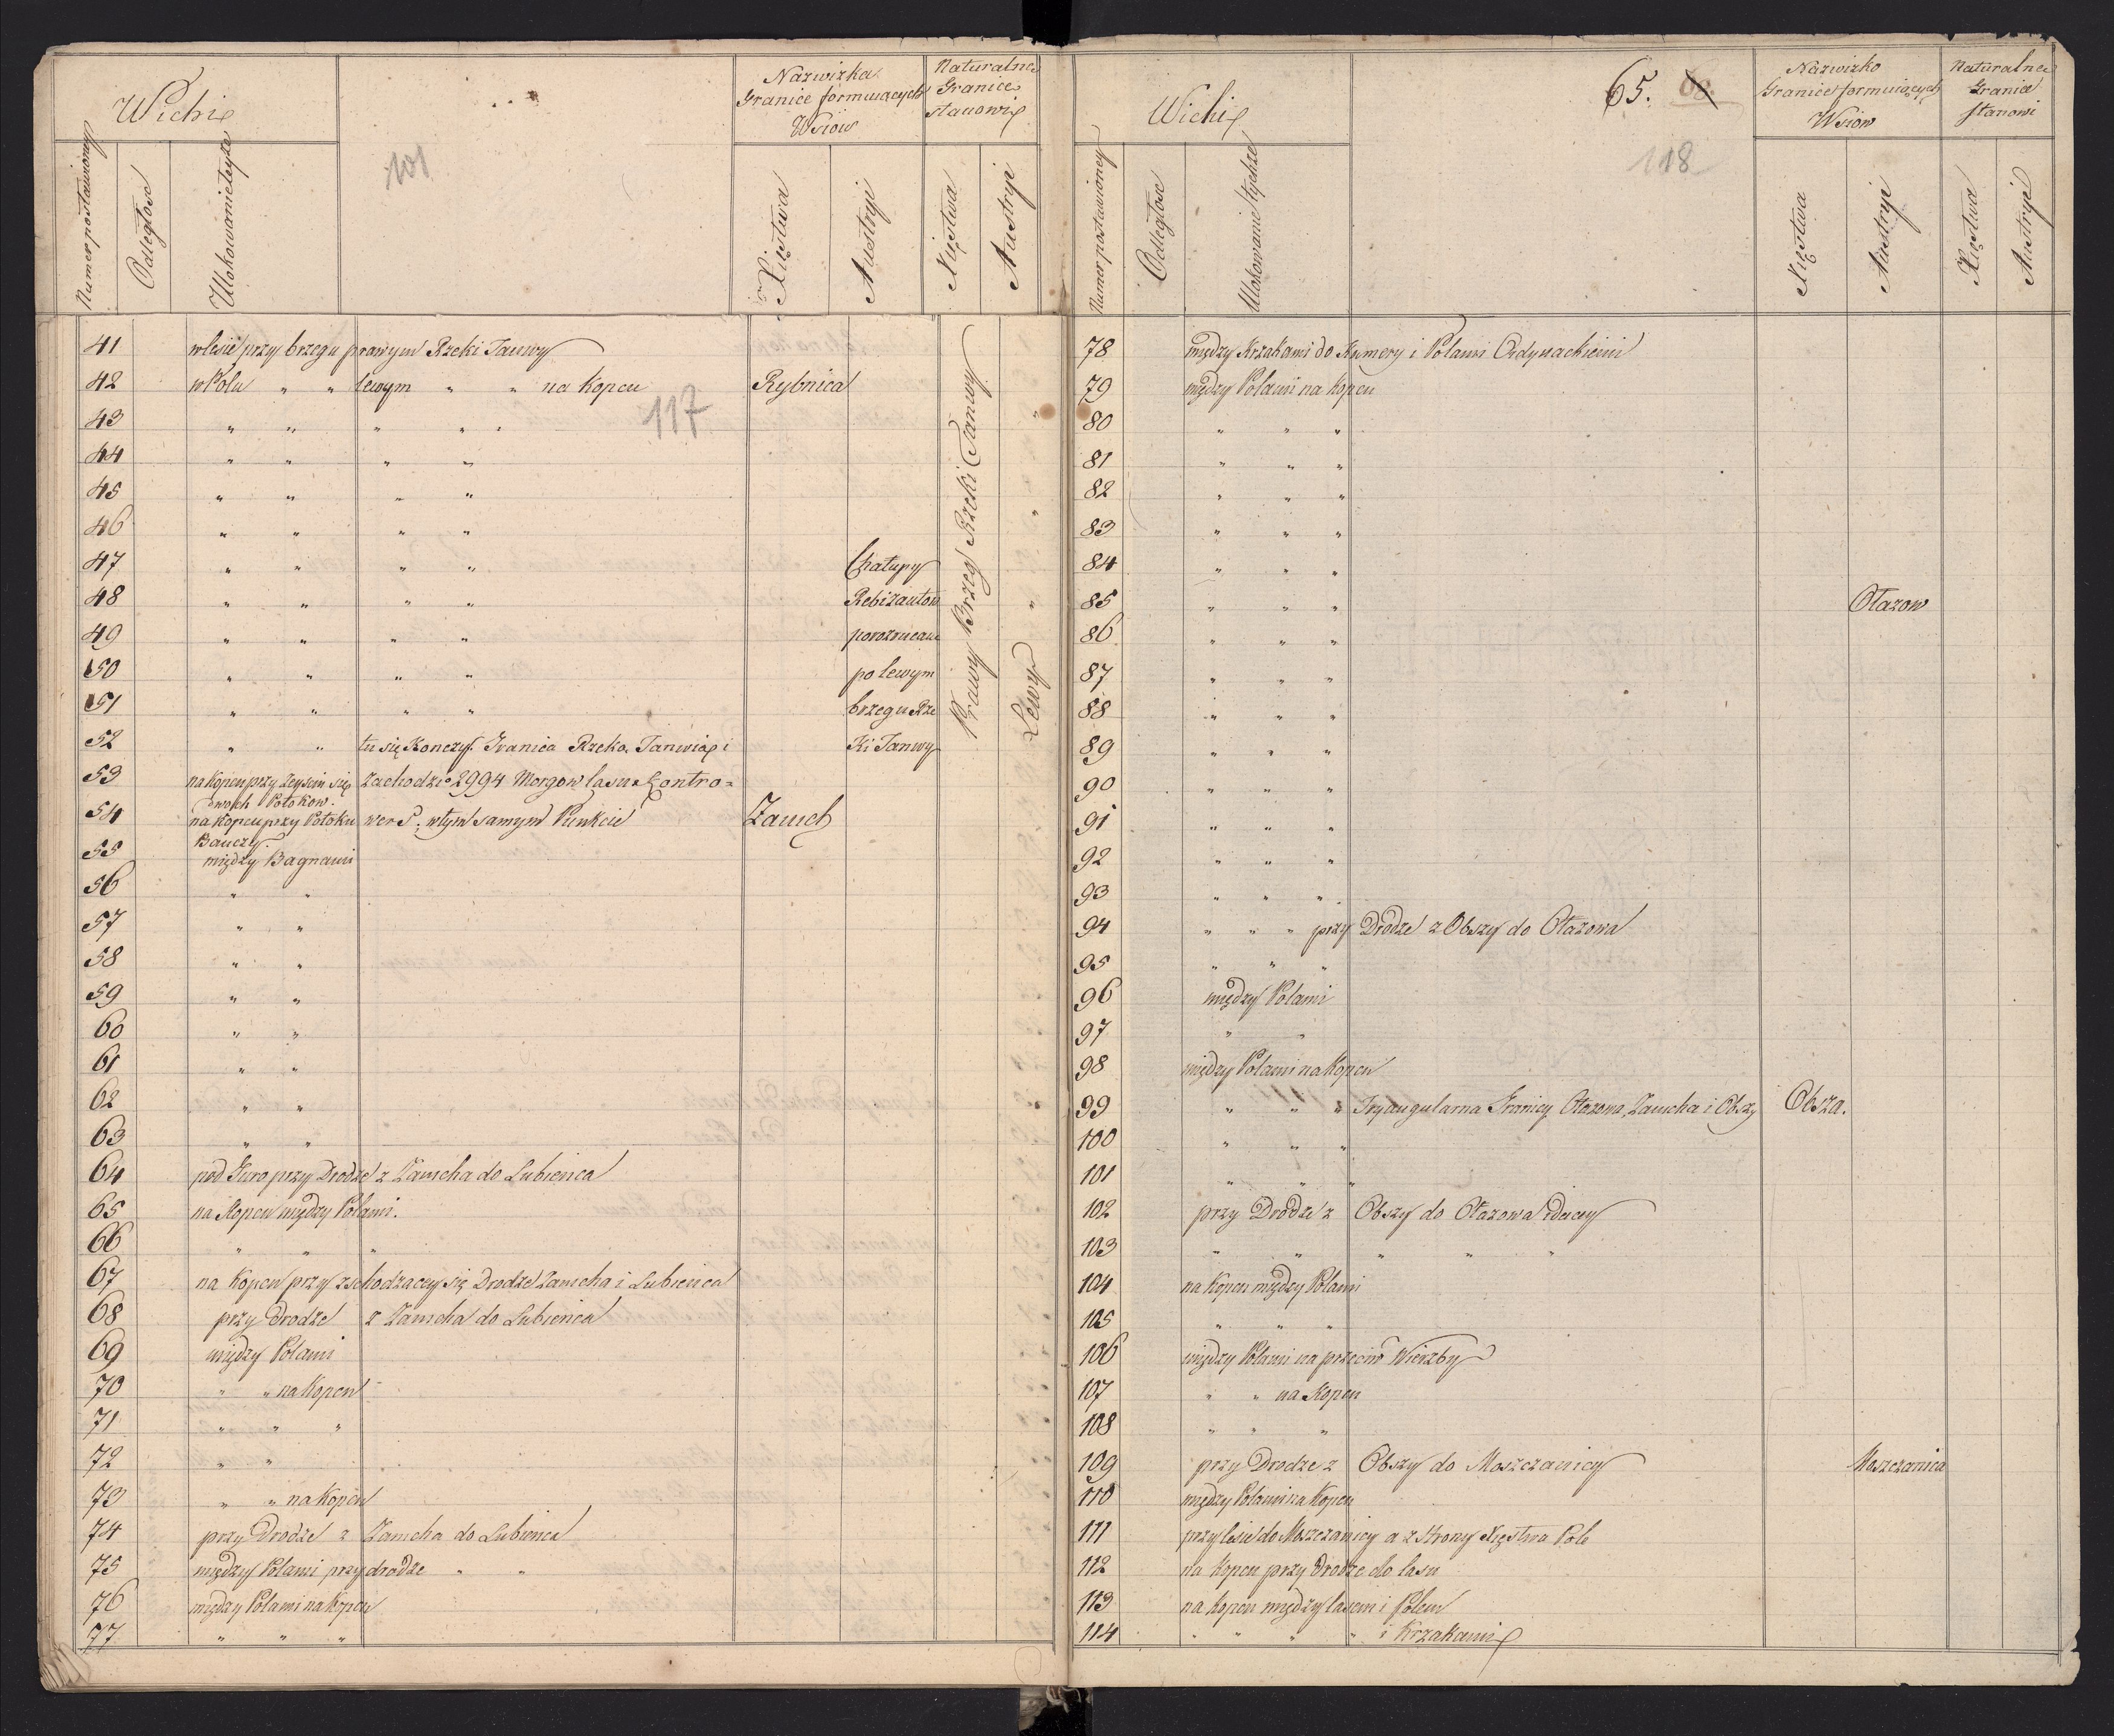 Wichi
Nazwizka
Granice formuiących
Wsiow
Naturalne
Granice
stanowią
101
Numer postawioney
Odległosc
Ulokowanie tyże
Xięstwa
Austryi
Xięstwa
Austryi
41 w lesie przy brzegu prawym Rzeki Tanwy
42 w Polu " " lewym " " na Kopcu Rybnica
117
43 " " " " "
44 " " " "
45 " " " "
46 " " " "
47 " " " " Chałupy
48 " " " " Rebizantow
49 " " " " porozrucane
50 " " " " po lewym
51 " " " " brzegu Rze
52 " " tu się Konczy Granica Rzeką Tanwią i Ki Tanwy
Prawy Brzeg Rzeki Tanwy
Lewy
53 na Kopcu przy Zeysciu się zachodzi 2994 Morgow lasu Kontro=
dwoch Potokow.
54 na Kopcu przy Potoku wers; w tym samym Punkcie Zamch
Bauczy.
55 między Bagnami
56 " "
57 " "
58 " "
59 " "
60 " "
61 " "
62 " "
63 " "
64 pod Guro przy Drodze z Zamcha do Lubienca
65 na Kopcu między Polami.
66 " " "
67 na Kopcu przy zchodzacey się Drodze Zamcha i Lubienca
68 przy Drodze z Zamcha do Lubienca
69 między Polami
70 " " na Kopcu
71 " " "
72 " "
73 " " na Kopcu
74 przy Drodze z Zamcha do Lubienca
75 między Polami przy drodze " "
76 między Polami na Kopcu
77 " " "
Wichi
65.
118
Nazwizko
Granice formuiących
Wsiow
Naturalne
Granice
stanowi
Numer postawioney
Odległosc
Ulokowanie tychże
Xięstwa
Austryi
Xięstwa
Austryi
78 między Krzakami do Kumory i Polami Ordynackiemi
79 między Polami na Kopcu
80 " " "
81 " " "
82 " " "
83 " " "
84 " " "
85 " " " Otazow
86 " " "
87 " " "
88 " " "
89 " " "
90 " " "
91 " " "
92 " " "
93 " " "
94 " " " przy Drodze z Obszy do Otazowa
95 " " "
96 między Polami
97 " "
98 między Polami na Kopcu
99 " " " Tryangularna Granicy Otazowa, Zamcha i Obszy Obsza.
100 " " "
101 " " "
102 przy Drodze z Obszy do Otazowa idącey
103 " " " " "
104 na Kopcu między Polami
105 " " "
106 między Polami na przeciw Wierzby
107 " " na Kopcu
108 " " "
109 przy Drodze z Obszy do Moszczanicy Moszczanica
110 między Polami na Kopcu
111 przy lesie do Moszczanicy a z strony Xięstwa Pole
112 na Kopcu przy Drodze do lasu
113 na Kopcu między lasem i Polem
114 " " " " i Krzakami